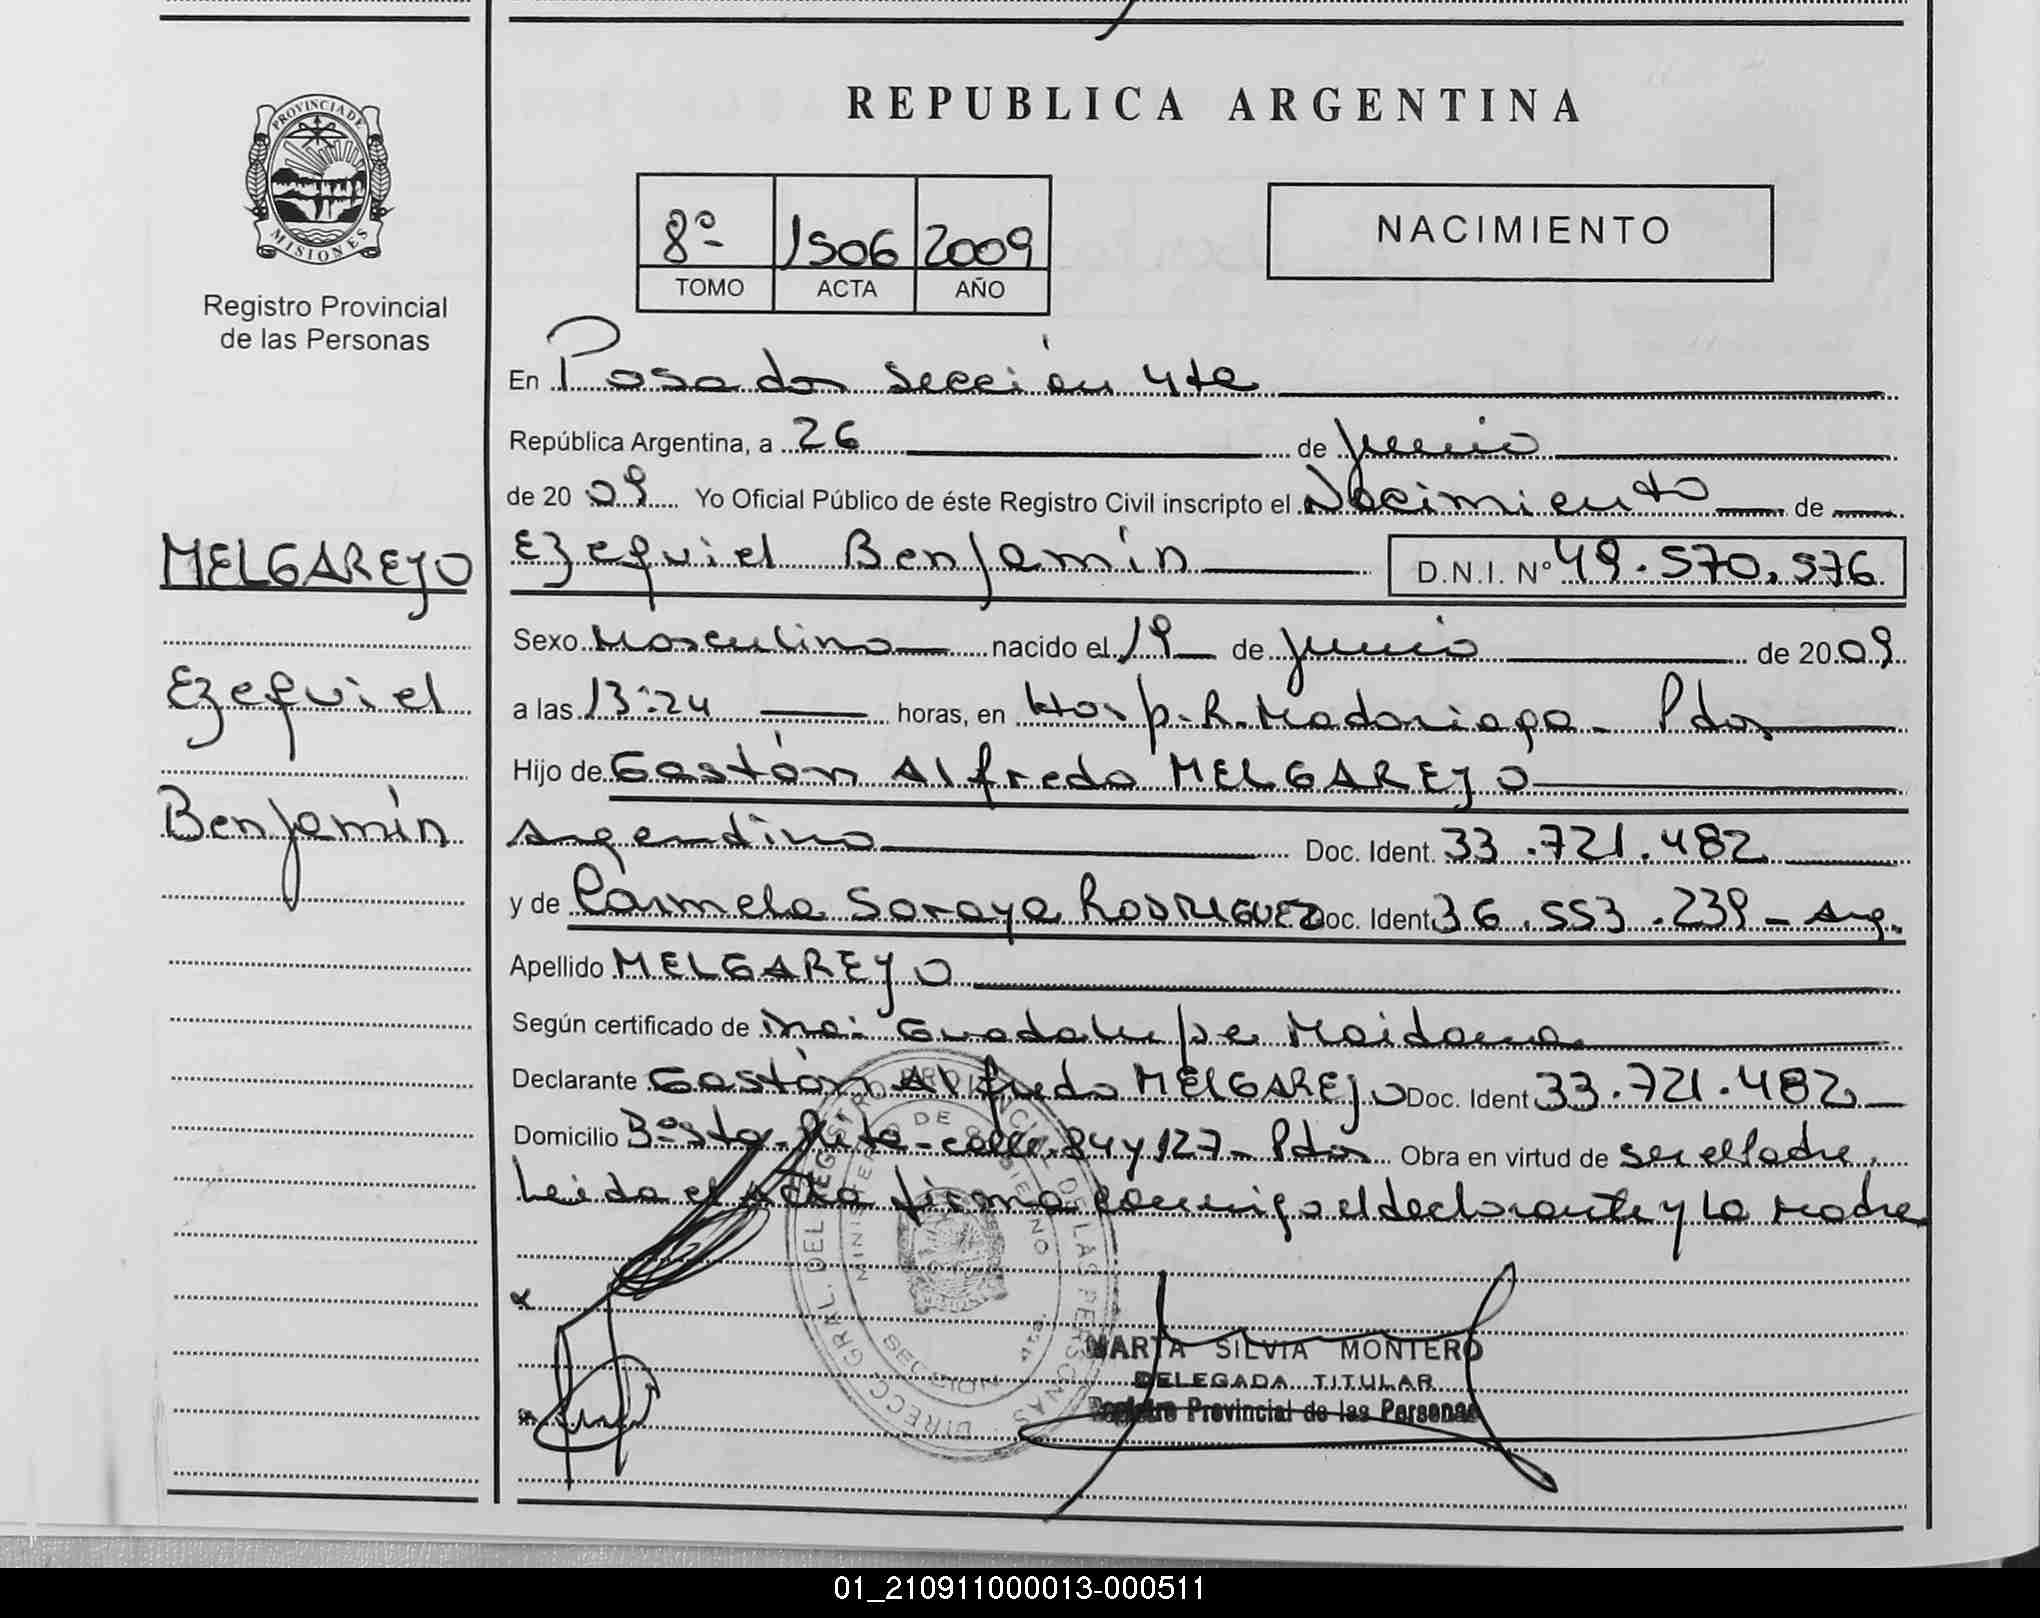 REPUBLICA ARGENTINA
PROVINCIA DE
MISIONES
Registro Provincial
de las Personas
8º 1506 2009
TOMO ACTA AÑO
NACIMIENTO
En Posadas sección 4ta
República Argentina, a 26 de junio
de 2009 Yo Oficial Público de éste Registro Civil inscripto el Nacimiento de
MELGAREJO
Ezequiel Benjamín D.N.I. Nº 49.570.576
Sexo Masculino nacido el 19 de junio de 2009
Ezequiel
a las 13:24 horas, en Hosp. R. Madariaga - Pdas
Hijo de Gastón Alfredo MELGAREJO
Benjamín
Argentino Doc. Ident. 33.721.482
y de Carmela Soraya RODRIGUEZ Doc. Ident. 36.553.239 - Arg.
Apellido MELGAREJO
Según certificado de Guadalupe Maidana
Declarante Gastón Alfredo MELGAREJO Doc. Ident 33.721.482
Domicilio Bº Sta. Rita - calle 84 y 127 - Pdas Obra en virtud de ser el Padre.
Leida el Acta firma conmigo el declarante y la Madre
DIRECC. GRAL. DEL REGISTRO PROVINCIAL DE LAS PERSONAS
MINISTERIO DE GOBIERNO
SECCION 4ta.
MARTA SILVIA MONTERO
DELEGADA TITULAR
Registro Provincial de las Personas
01_210911000013-000511